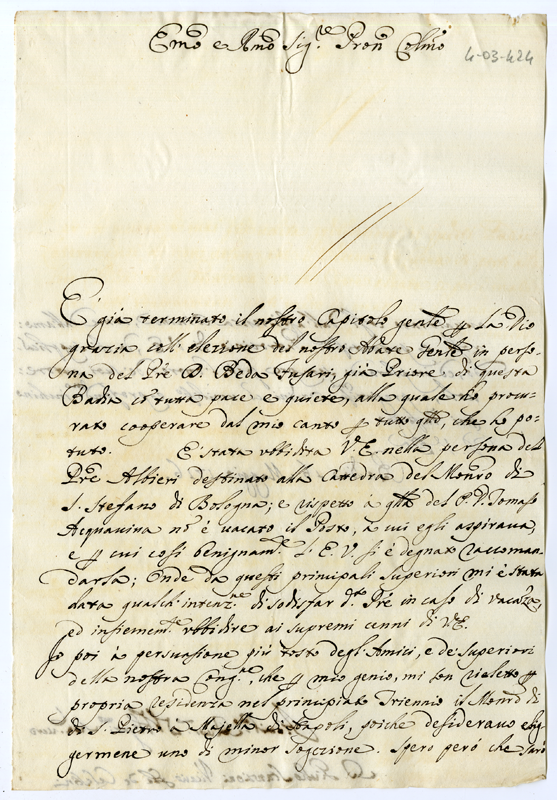 Emo e Rmo Sigre Pron Colmo
4-03-424
E' già terminato il nostro Capitolo genle p la Dio
grazia coll' elezzione del nostro Abate Genle in perso-
na del Pre D. Beda Fusari, già Priore di questa
Badia co' tutta pace e quiete, alla quale hò procu-
rato cooperare dal mio canto p tutto qllo, che hò po-
tuto. E' stata ubbidita V. E. nella persona del
Pre Altieri destinato alla Cattedra del Monro di
S. Stefano di Bologna; e rispetto à qlla del P. D. Tomaso
Acquaviva no' è vacato il Posto, à cui egli aspirava,
e p cui così benignamte l' E. V. si è degnata raccoman-
darla; Onde da questi principali Superiori mi è stata
data qualche intenzne di sodisfar do Pre in caso di vacaza,
ed insiememte ubbidire ai supremi cenni di V. E.
Io poi à persuasione più tosto degl' Amici, e de Superiori
della nostra Congne, che p mio genio, mi son rieletto p
propria residenza nel principiato Triennio il Monro di
di S. Pietro à Majella di Napoli, poiche desideravo elig-
germene uno di minor sogezione. Spero però che sarò